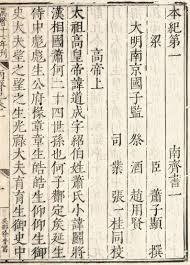 本紀第一　南齊書一
梁　臣蕭子顯撰
大明南京國子監　祭酒趙用賢
司業張一桂同校
高帝上
太祖高皇帝諱道成字紹伯姓蕭氏小諱鬬將
漢相國蕭何二十四世孫也何子酇定侯延生
侍中彪彪生公府掾章章生皓皓生仰仰生御
史大夫望之望之生光祿大夫育育生御史中
十七年刊